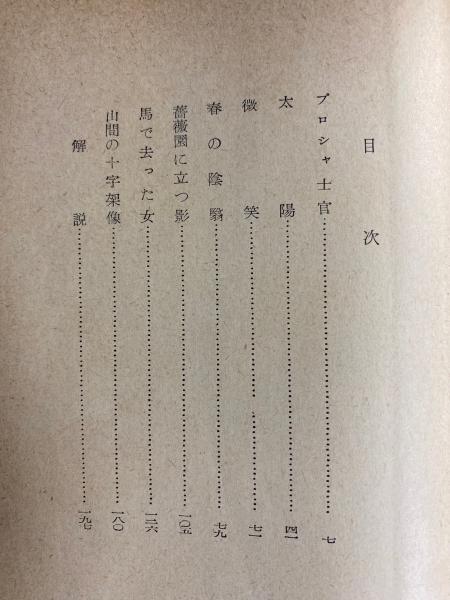 目次
プロシャ士官 七
太陽 四一
微笑 七一
春の陰翳 七九
薔薇園に立つ影 一〇五
馬で去った女 一二六
山間の十字架像 一八〇
解説 一九七